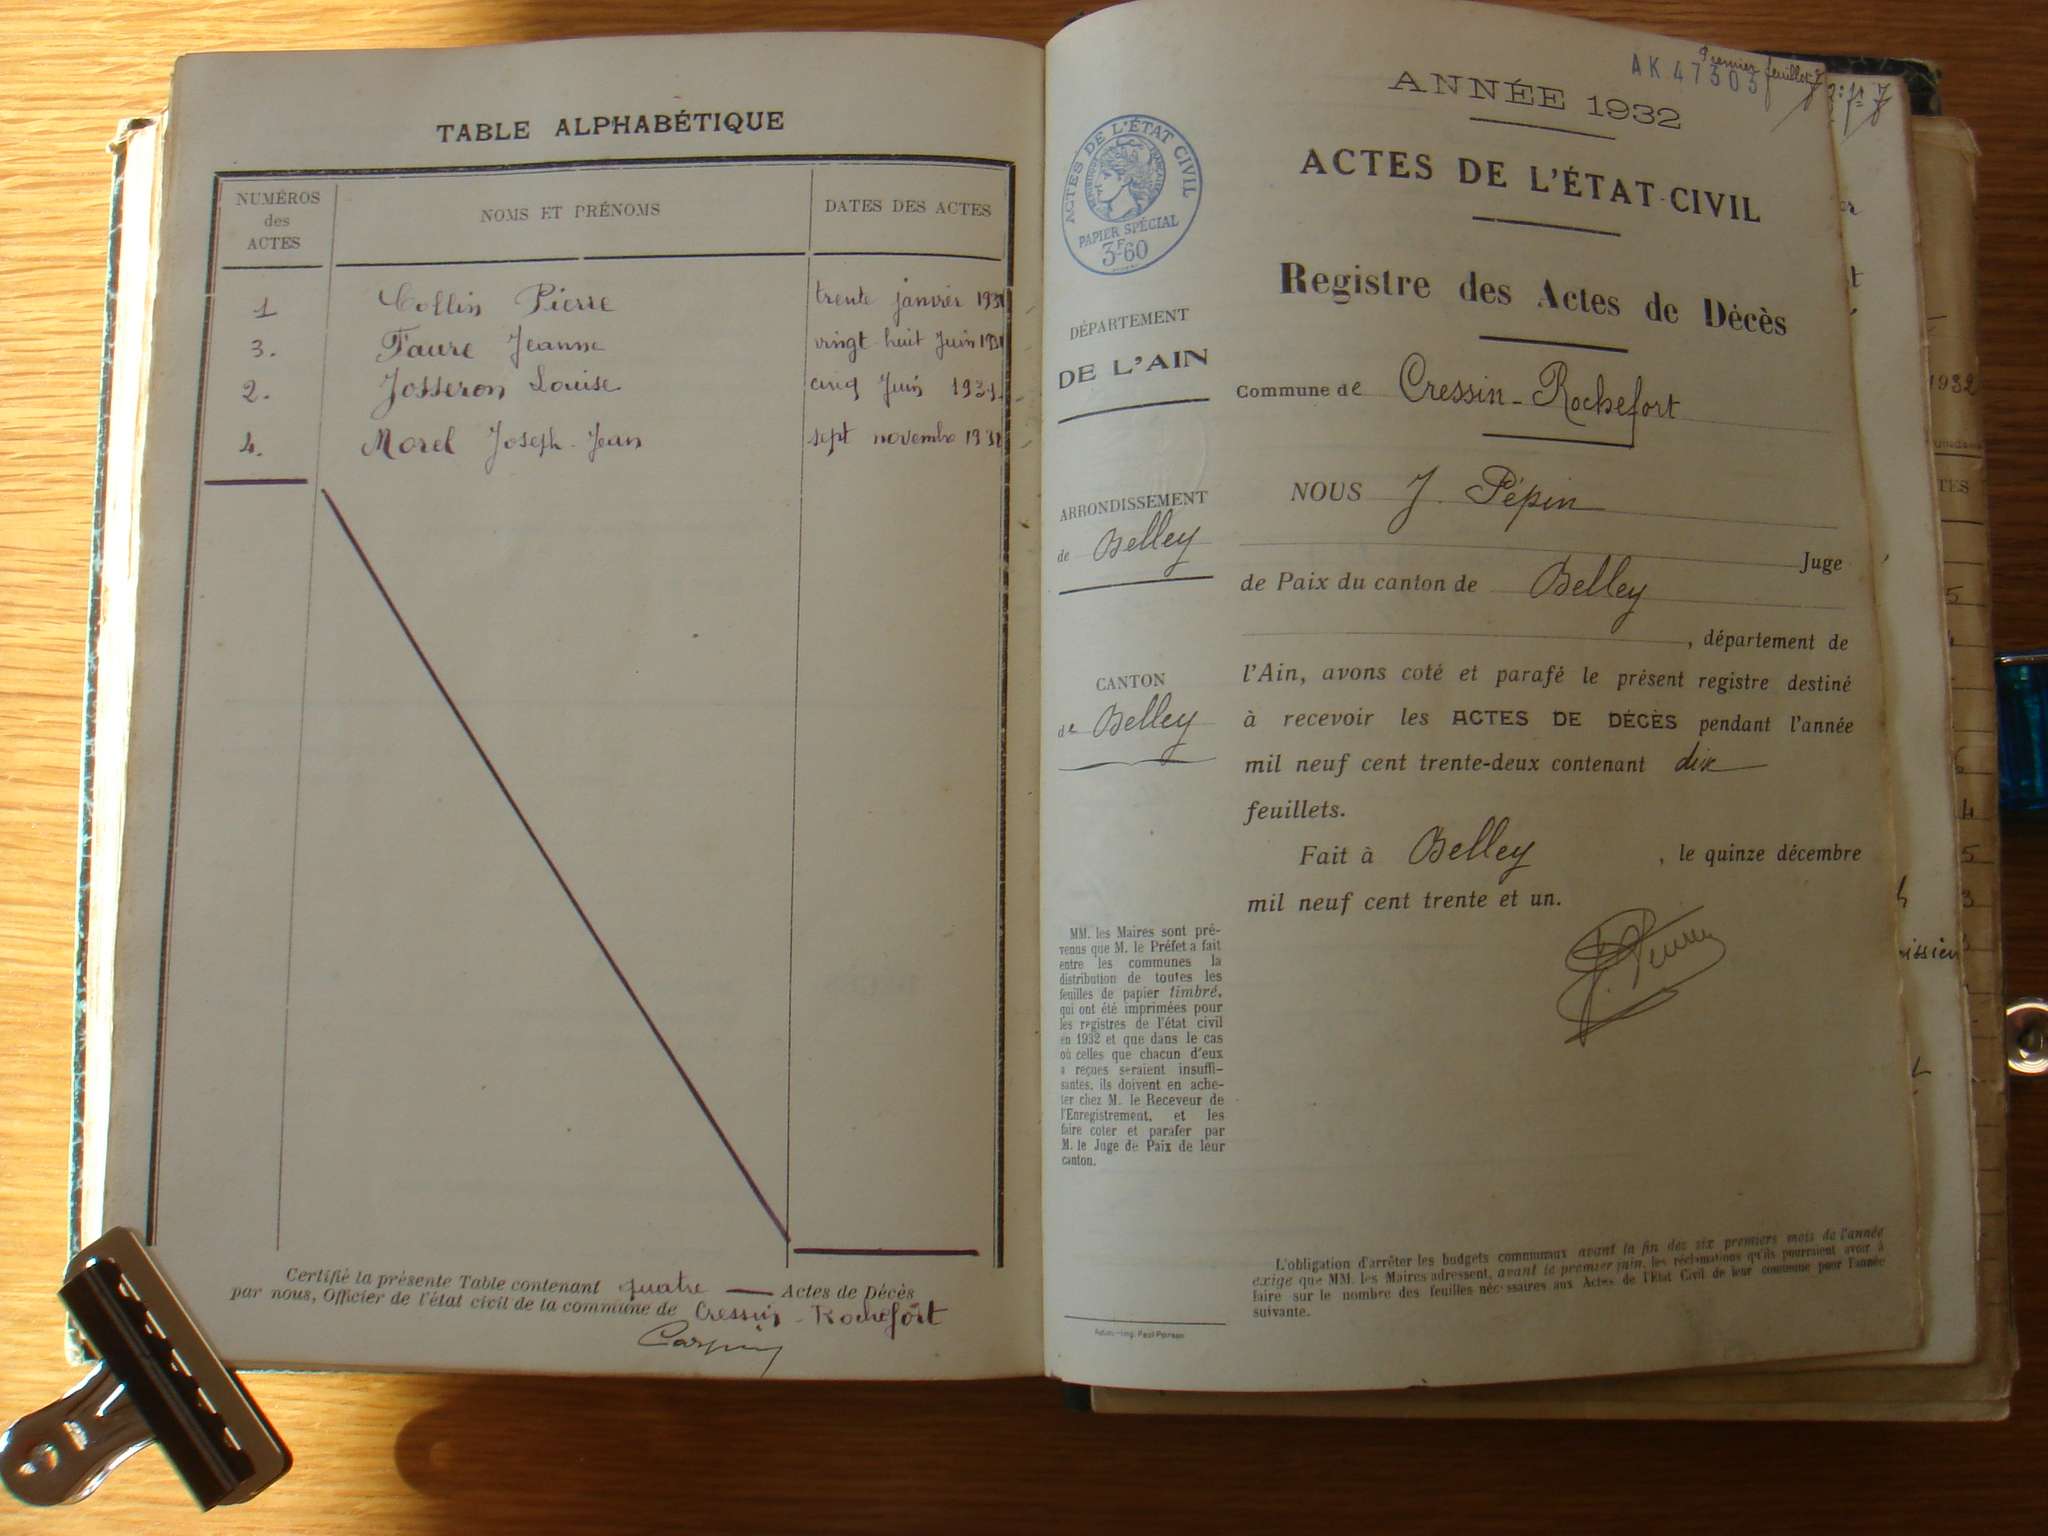 TABLE ALPHABÉTIQUE
NUMÉROS
des
ACTES
NOMS ET PRÉNOMS
DATES DES ACTES
1 Collin Pierre trente janvier 1931
3. Faure Jeanne vingt huit Juin 1931
2. Josseron Louise cinq Juin 1931.
4. Morel Joseph. Jean sept novembre 1931
Certifié la présente Table contenant quatre Actes de Décès
par nous, Officier de l'état civil de la commune de Cressin - Rochefort
Premier feuillet
AK 47303
ANNÉE 1932
ACTES DE L'ÉTAT CIVIL
ACTES DE L'ÉTAT CIVIL
PAPIER SPÉCIAL
3F60
Registre des Actes de Décès
DÉPARTEMENT
DE L'AIN
Commune de Cressin - Rochefort
ARRONDISSEMENT
de Belley
CANTON
de Belley
NOUS J. Pépin
Juge
de Paix du canton de Belley
, département de
l'Ain, avons coté et parafé le présent registre destiné
à recevoir les ACTES DE DÉCÈS pendant l'année
mil neuf cent trente-deux contenant dix
feuillets.
Fait à Belley, le quinze décembre
mil neuf cent trente et un.
MM. les Maires sont pré-
venus que M. le Préfet a fait
entre les communes la
distribution de toutes les
feuilles de papier timbré,
qui ont été imprimées pour
les registres de l'état civil
en 1932 et que dans le cas
où celles que chacun d'eux
a reçues seraient insuffi-
santes, ils doivent en ache-
ter chez M. le Receveur de
l'Enregistrement, et les
faire coter et parafer par
M. le Juge de Paix de leur
canton.
L'obligation d'arrêter les budgets communaux avant la fin des six premiers mois de l'année
exige que MM. les Maires adressent, avant le premier juin, les réclamations qu'ils pourraient avoir à
faire sur le nombre des feuilles nécessaires aux Actes de l'Etat Civil de leur commune pour l'année
suivante.
1932